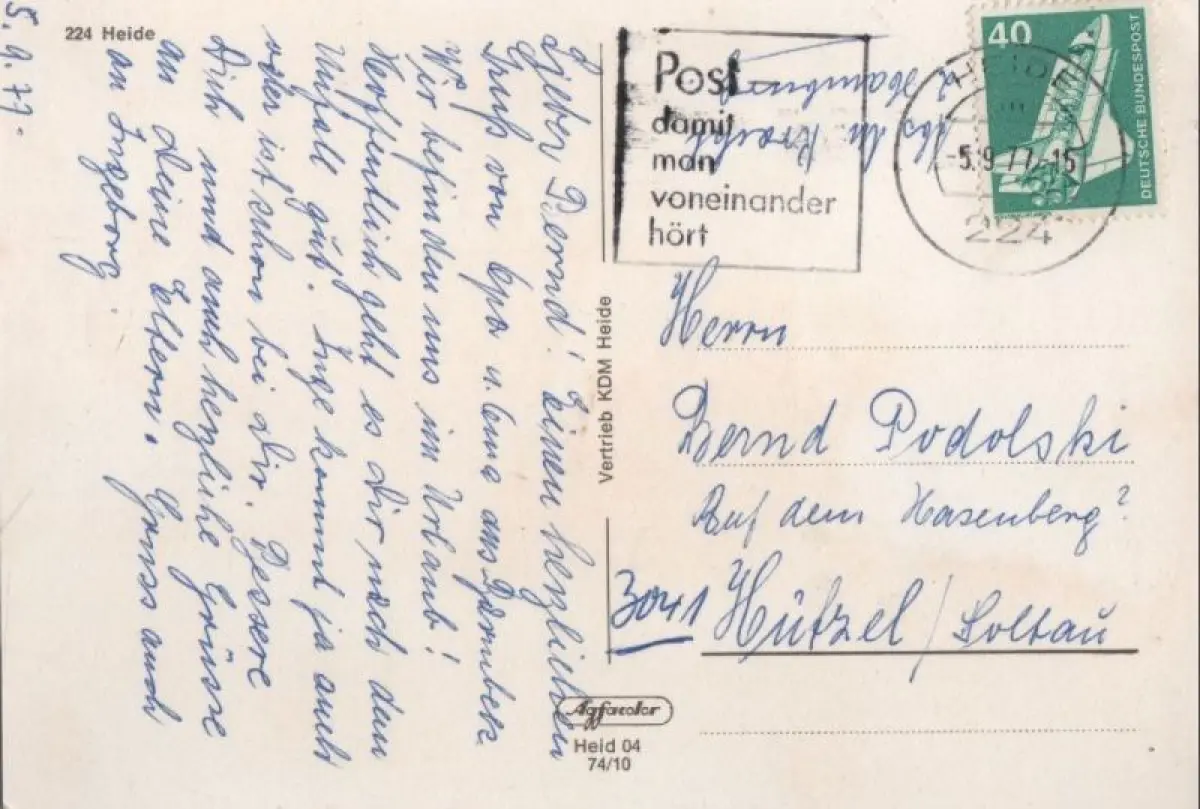 224 Heide
5.9.77.
Lieber Bernd! Einen herzlichen
Gruß von Opa u. Oma aus
Wir befinden uns im Urlaub!
Hoffentlich geht es Dir nach dem
Unfall gut. Inge kommt ja auch
oder ist schon bei Dir. Bessere
Dich und auch herzliche Grüsse
an Deine Eltern. Gruss auch
an Ingeborg.
Vertrieb KDM Heide
Agfacolor
Heid 04
74/10
Post
damit
man
voneinander
hört
HEIDE
-5.9.77-15
224
40
DEUTSCHE BUNDESPOST
Herrn
Bernd Podolski
Auf dem Hasenberg?
3041 Hützel / Soltau